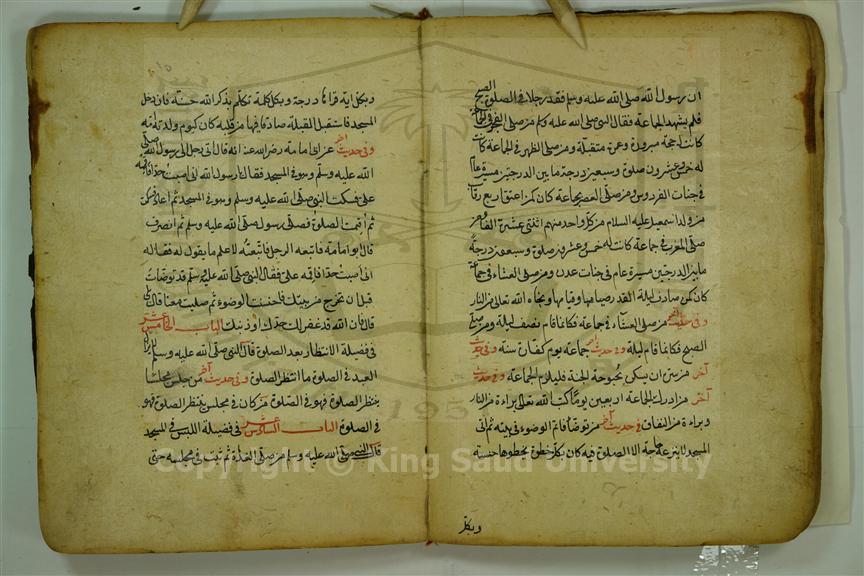 ان رسول الله صلى الله عليه وسلم فقد رجلا في الصلوة الصبح
فلم يشهد الجماعة فقال النبي صلى الله عليه وسلم من صلى الفجر في الجماعة
كانت له حجة مبرورة وعمرة متقبلة ومن صلى الظهر في الجماعة كانت
له خمس وعشرون صلوة وسبعين درجة ما بين الدرجتين مسيرة عام
في جنات الفردوس ومن صلى العصر بجماعة كان كمن اعتق اربع رقاب
من ولد اسمعيل عليه السلام من كل واحد منهم اثنتي عشرة الفا ومن
صلى المغرب في جماعة كانت له خمس وعشرون صلوة وسبعين درجة
ما بين الدرجتين مسيرة عام في جنات عدن ومن صلى العشاء في جماعة
كان كمن صادف ليلة القدر صيامها وقيامها ونجاه الله تعالى من النار
وفي حديث من صلى العشاء في جماعة فكانما قام نصف ليلة ومن صلى
الصبح فكانما قام ليلة وفي حديث جماعة يوم كفارت سنة وفي حديث
آخر من سره ان يسكن بحبوحة الجنة فليلازم الجماعة وفي حديث
آخر من ادرك الجماعة اربعين يوما كتب الله تعالى براءة من النار
وبراءة من النفاق في حديث آخر من توضا فاتم الوضوء في بيته ثم اتى
المسجد لا ينزعه حاجة الا الصلوة فيه كان بكل خطوة يخطوها حسنة
وبكل
وبكل اية قراها درجة وبكل كلمة تكلم بذكر الله حسنة فان دخل
المسجد فاستقبل القبلة صادقا فيها من قلبه كان كيوم ولدته امه
وفي حديث آخر عن ابي امامة رضي الله عنه انه قال اتى رجل الى رسول الله صلى
الله عليه وسلم وهو في المسجد فقال رسول الله اني اصبت حدا فاقمه
على فسكت النبي صلى الله عليه وسلم وهو في المسجد ثم اعاد فسكت
ثم اقيمت الصلوة فصلى رسول صلى الله عليه وسلم ثم انصرف
قال ابو امامة فاتبعه الرجل فاتبعته لاعلم ما يقول له فقال له
اني اصبت حدا فاقمه علي فقال النبي صلى الله عليه وسلم قد توضات
قبل ان تخرج من بيتك فاحسنت الوضوء ثم صليت معنا قال بلى
قال فان الله قد غفر لك حدك او ذنبك الباب الخامس عشر
في فضيلة الانتظار بعد الصلوة قال النبي صلى الله عليه وسلم
العبد في الصلوة ما انتظر الصلوة وفي حديث آخر من جلس مجلسا
ينتظر الصلوة فهو في الصلوة من كان في مجلس ينتظر الصلوة فهو
في الصلوة الباب السادس عشر في فضيلة اللبس في المسجد
قال النبي صلى الله عليه وسلم من صلى الغداة ثم ثبت في مجلسه حتى
Copyright © King Saud University